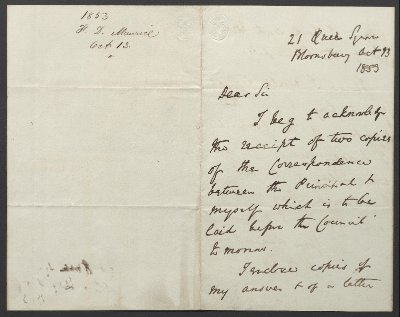 1853
F. D. Maurice
Oct 13.
21 Queen Square
Bloomsbury Oct 13
1853
Dear Sir
I beg to acknowledge
the receipt of two copies
of the Correspondence
between the Principal &
myself which is to be
laid before the Council
tomorrow.
I enclose copies of
my answer & of a letter